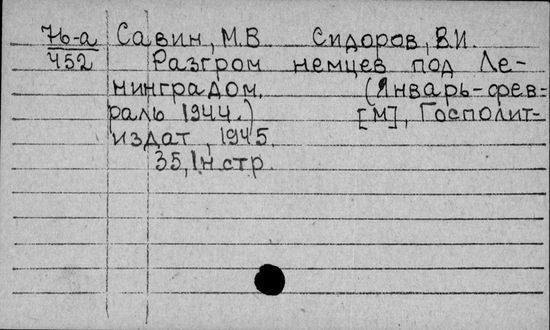 76-а Савин, М.В Сидоров, В.И.
452 Разгром немцев под Ле-
нинградом. (Январь-фев-
раль 1944.) [М], Госполит-
издат, 1945.
35, 1 н. стр.